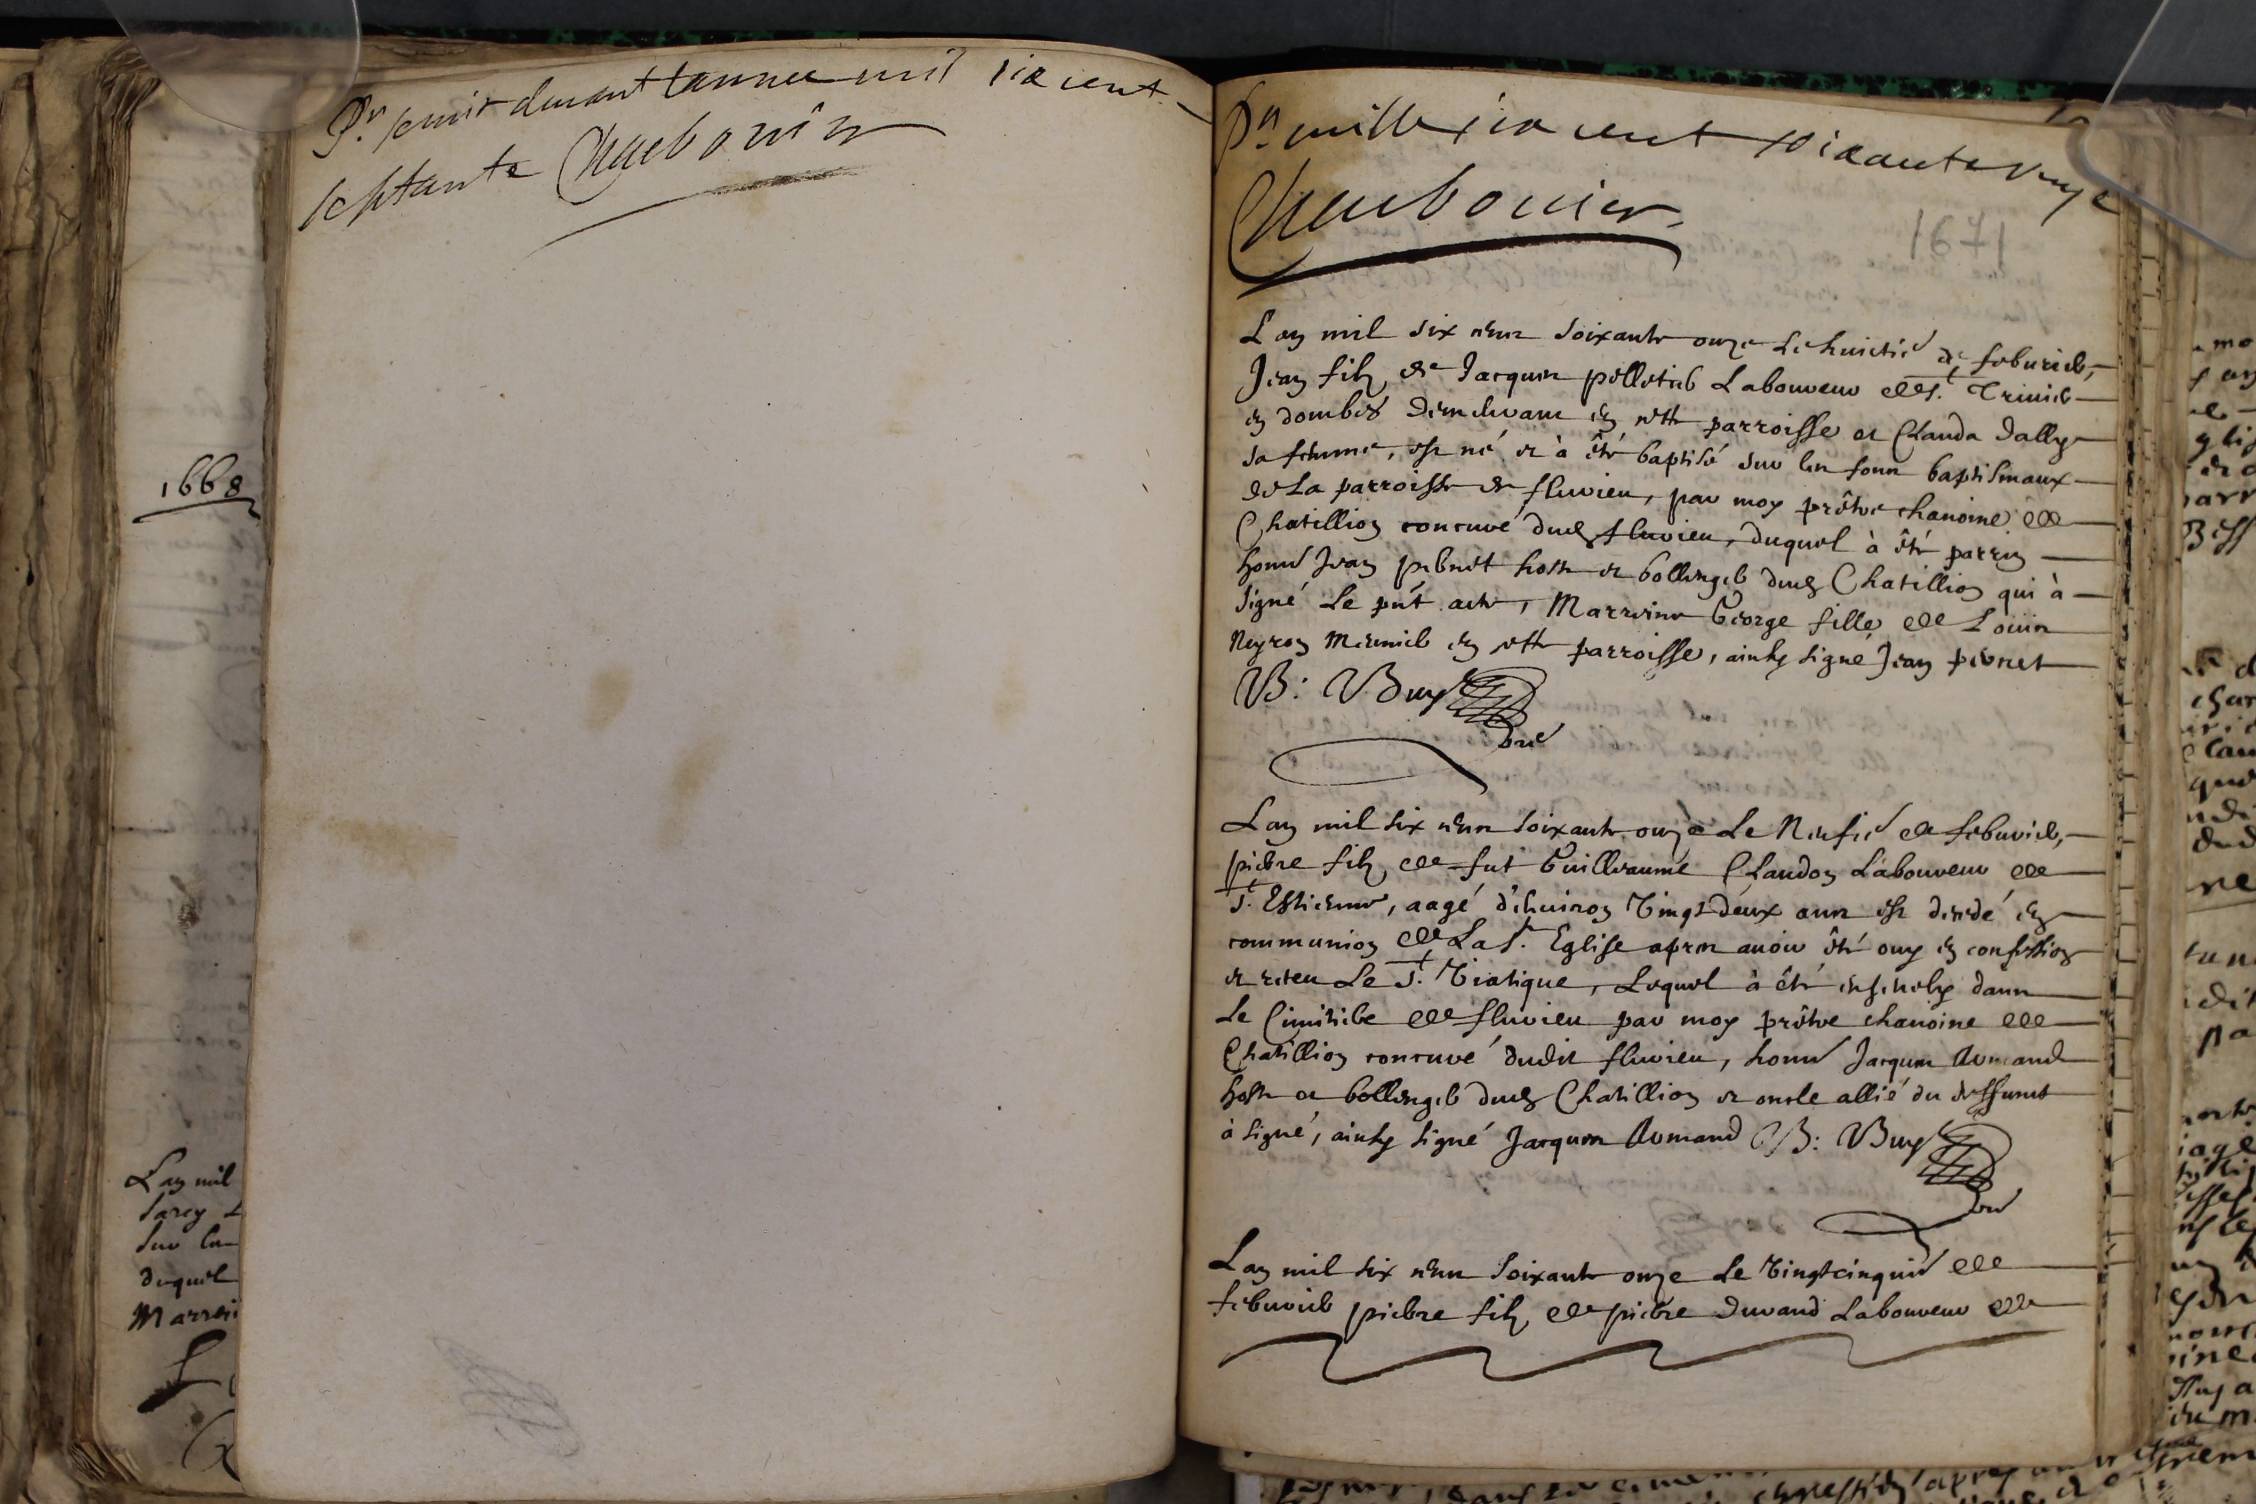 Pr servir durant lannee mil six cent
septante Charbonier
1668
Lan mil
Sarcy
Sur les
duquel
Marrei
Pr mille six cent soixante unze
Charbonier
1671
Lan mil six cens soixante onze Le huictie de feburier,
Jean filz de Jacques pelletier Laboureur de St. Trivier
en dombes demeurant en cette parroisse et Clauda dally
sa femme, est né et à été baptisé sur les fons baptismaux
de La parroisse de fluvieu, par moy prêtre chanoine de
Chatillion concuré dud fluvieu, duquel à été parrin
honn Jean pernet hoste et bollenger dud Chatillion qui à
signé Le pnt acte, Marreine George fille de Louis
Neyron Meunier en cette parroisse, ainsy signé Jean pernet
B: Buy
Lan mil six cens soixante onze Le Neufie de feburier,
pierre filz de fut Guilleaume Claudon Laboureur de
St. Estienne, aagé d'enuiron Vingt deux ans est decedé en
communion de La Ste. Eglise apres auoir été ouy en confession
et receu Le St. Viatique, Lequel à été enseuely dans
Le Cimitiere de fluvieu par moy prêtre chanoine de
Chatillion concuré dudit fluvieu, honn Jacques Armand
hoste et bollenger dud Chatillion et oncle allié du deffunct
à signé, ainsy signé Jacques Armand B: Buy
Lan mil six cens soixante onze Le Vingtcinquie de
feburier pierre filz de pierre Durand Laboureur de